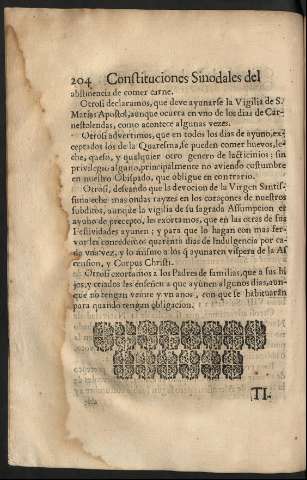 204 Constituciones Sinodales del
abstinencia de comer carne.
Otrosi declaramos, que deve ayunarse la Vigilia de S.
Matias Apostol, aunque ocurra en vno de los dias de Car-
nestolendas, como acontece algunas vezes.
Otrosi advertimos, que en todos los dias de ayuno, ex-
ceptados los de la Quaresma, se pueden comer huevos, le-
che, queso, y qualquier otro genero de lacticinios; sin
privilegio alguno, principalmente no aviendo costumbre
en nuestro Obispado, que obligue en contrario.
Otrosi, deseando que la devocion de la Virgen Santis-
sima eche mas ondas rayzes en los coraçones de nuestros
subditos, aunque la vigilia de su sagrada Assumpcion es
ayuno de precepto, les exortamos, que en las otras de sus
Festividades ayunen; y para que lo hagan con mas fer-
vor les concedemos quarenta dias de Indulgencia por ca-
da vna vez, y lo mismo a los q̃ ayunaren vispera de la As
cension, y Corpus Christi.
Otrosi exortamos a los Padres de familias, que a sus hi
jos, y criados les enseñen a que ayunen algunos dias, aun-
que no tengan veinte y vn años, con que se habituaràn
para quando tengan obligacion.
TI-